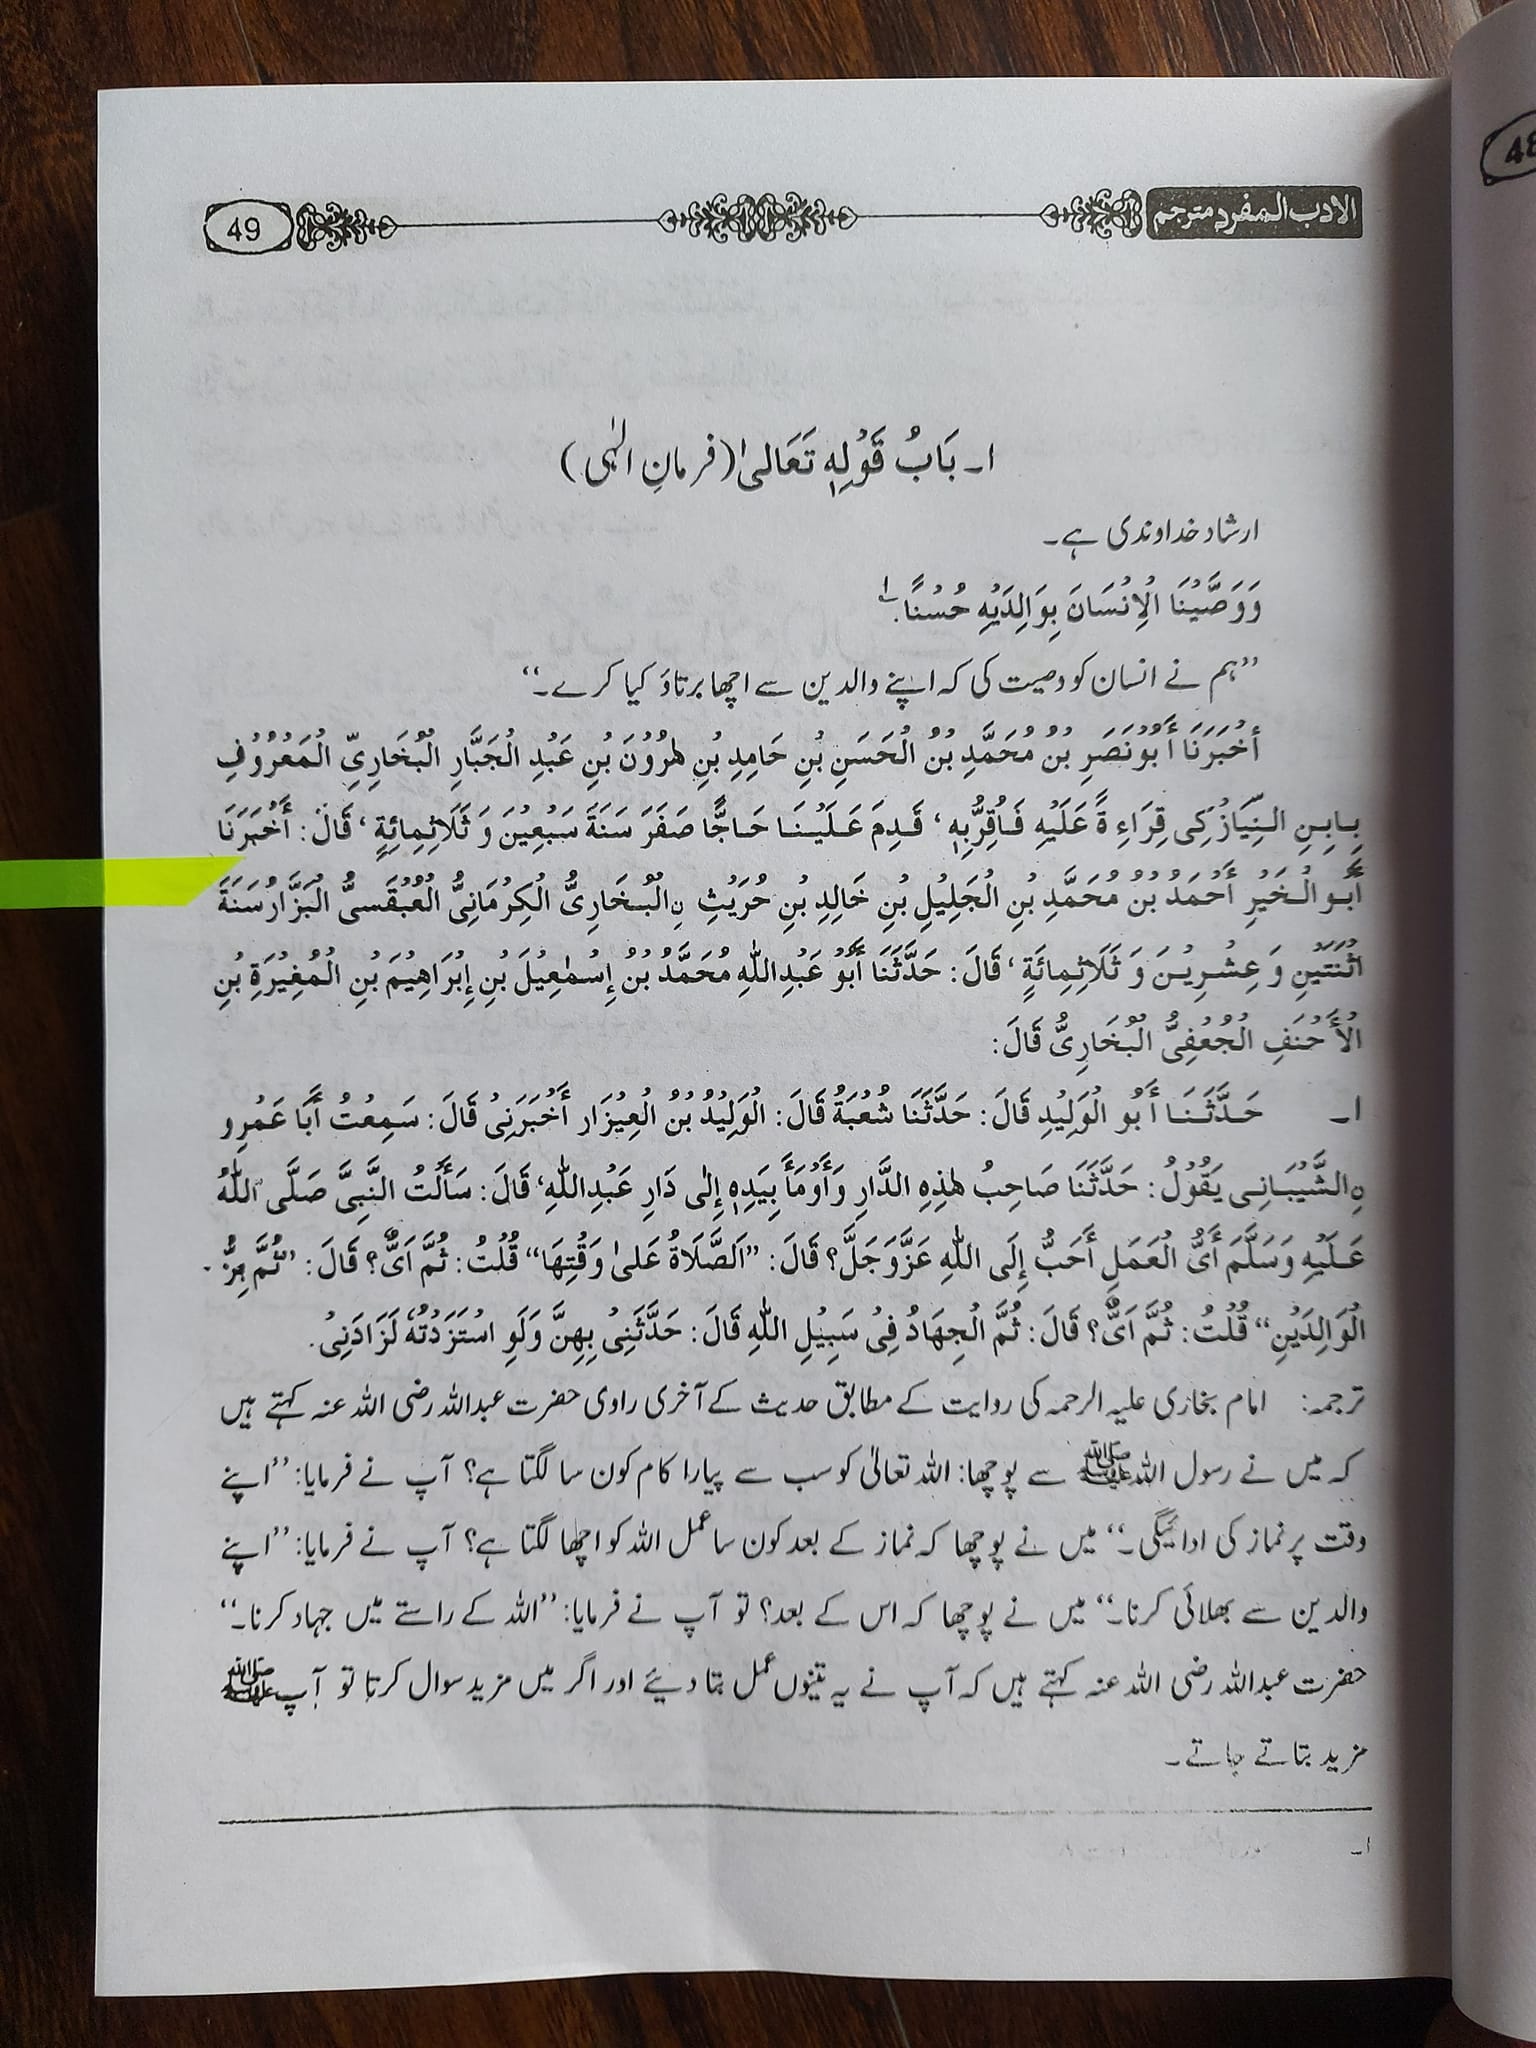 الادب المفرد مترجم
49
48
۱۔ بَابُ قَوْلِهٖ تَعَالىٰ (فرمانِ الٰہی)
ارشاد خداوندی ہے۔
وَوَصَّيْنَا الْاِنْسَانَ بِوَالِدَيْهِ حُسْنًا. ۱؎
’’ہم نے انسان کو وصیت کی کہ اپنے والدین سے اچھا برتاؤ کیا کرے۔‘‘
أَخْبَرَنَا أَبُوْنَصَرِ بْنُ مُحَمَّدِ بْنُ الْحَسَنِ بْنِ حَامِدِ بْنِ هٰرُوْنَ بْنِ عَبْدِ الْجَبَّارِ الْبُخَارِيِّ الْمَعْرُوْفِ
بِابِنِ النِّيَازْكِى قِرَاءِ ةً عَلَيْهِ فَأُقِرُّبِهٖ، قَدِمَ عَلَيْنَا حَاجًّا صَفَرَ سَنَةَ سَبْعِيْنَ وَ ثَلَاثِمِائِةٍ، قَالَ: أَخْبَرَنَا
أَبُو الْخَيْرِ أَحْمَدُ بْنُ مُحَمَّدِ بْنِ الْجَلِيْلِ بْنِ خَالِدِ بْنِ حُرَيْثِ نِ الْبُخَارِىُّ الْكِرْمَانِىُّ الْعُبْقَسىُّ الْبَزَّارُ سَنَةَ
اثْنَتَيْنِ وَ عِشْرِيْنَ وَ ثَلَاثِمِائَةٍ، قَالَ: حَدَّثَنَا أَبُوْ عَبْدِاللّٰهِ مُحَمَّدُ بْنُ إِسْمٰعِيْلَ بْنِ إِبْرَاهِيْمَ بْنِ الْمُغِيْرَةِ بْنِ
الْأَحْنَفِ الْجُعْفِىُّ الْبُخَارِىُّ قَالَ:
۱۔ حَدَّثَنَا أَبُو الْوَلِيْدِ قَالَ: حَدَّثَنَا شُعْبَةُ قَالَ: الْوَلِيْدُ بْنُ الْعِيْزَار أَخْبَرَنِىْ قَالَ: سَمِعْتُ أَبَا عَمْرِو
نِ الشَّيْبَانِى يَقُوْلُ: حَدَّثَنَا صَاحِبُ هٰذِهِ الدَّارِ وَأَوْمَأَ بِيَدِهٖ إِلٰى دَارِ عَبْدِاللّٰهِ، قَالَ: سَأَلْتُ النَّبِىَّ صَلَّى اللّٰهُ
عَلَيْهِ وَسَلَّمَ أَىُّ الْعَمَلِ أَحَبُّ إِلَى اللّٰهِ عَزَّوَجَلَّ؟ قَالَ: ’’اَلصَّلَاةُ عَلىٰ وَقْتِهَا‘‘ قُلْتُ: ثُمَّ اَىٌّ؟ قَالَ: ’’ثُمَّ بِرُّ
الْوَالِدَيْنِ‘‘ قُلْتُ: ثُمَّ اَىٌّ؟ قَالَ: ثُمَّ الْجِهَادُ فِىْ سَبِيْلِ اللّٰهِ قَالَ: حَدَّثَنِىْ بِهِنَّ وَلَوِ اسْتَزَدْتُهٗ لَزَادَنِىْ.
ترجمہ: امام بخاری علیہ الرحمہ کی روایت کے مطابق حدیث کے آخری راوی حضرت عبداللہ رضی اللہ عنہ کہتے ہیں
کہ میں نے رسول اللہ ﷺ سے پوچھا: اللہ تعالیٰ کو سب سے پیارا کام کون سا لگتا ہے؟ آپ نے فرمایا: ’’اپنے
وقت پر نماز کی ادائیگی۔‘‘ میں نے پوچھا کہ نماز کے بعد کون سا عمل اللہ کو اچھا لگتا ہے؟ آپ نے فرمایا: ’’اپنے
والدین سے بھلائی کرنا۔‘‘ میں نے پوچھا کہ اس کے بعد؟ تو آپ نے فرمایا: ’’اللہ کے راستے میں جہاد کرنا۔‘‘
حضرت عبداللہ رضی اللہ عنہ کہتے ہیں کہ آپ نے یہ تینوں عمل بتا دیئے اور اگر میں مزید سوال کرتا تو آپ ﷺ
مزید بتاتے جاتے۔
۱۔